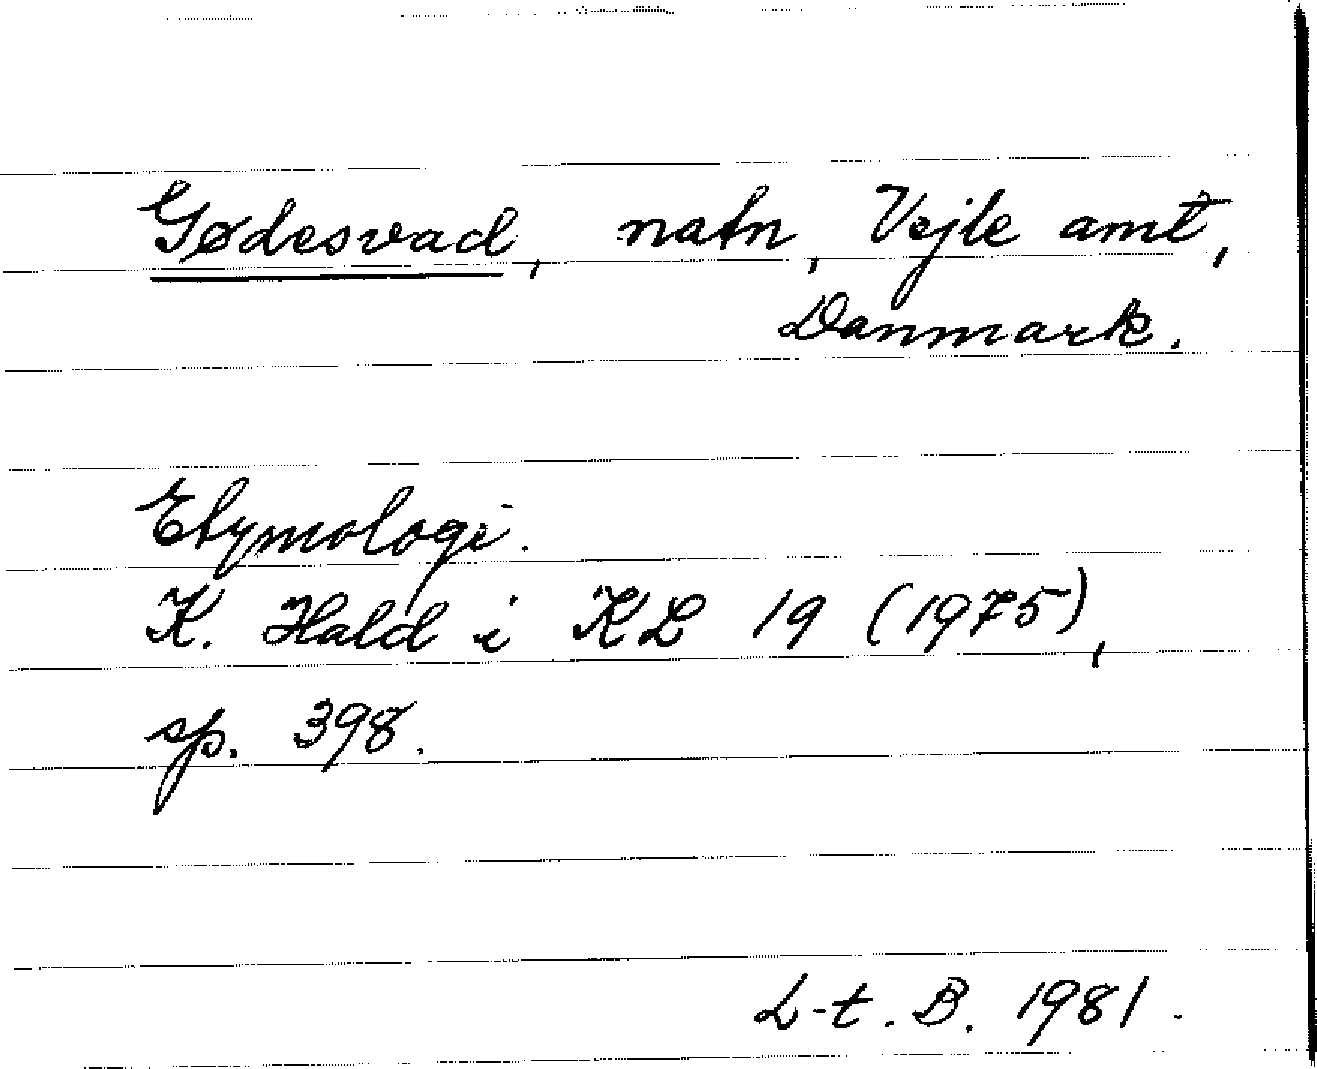 Gødesvad, natn, Vejle amt,
Danmark.
Etymologi.
K. Hald i KL 19 (1975),
sp. 398.
L-t. B. 1981.